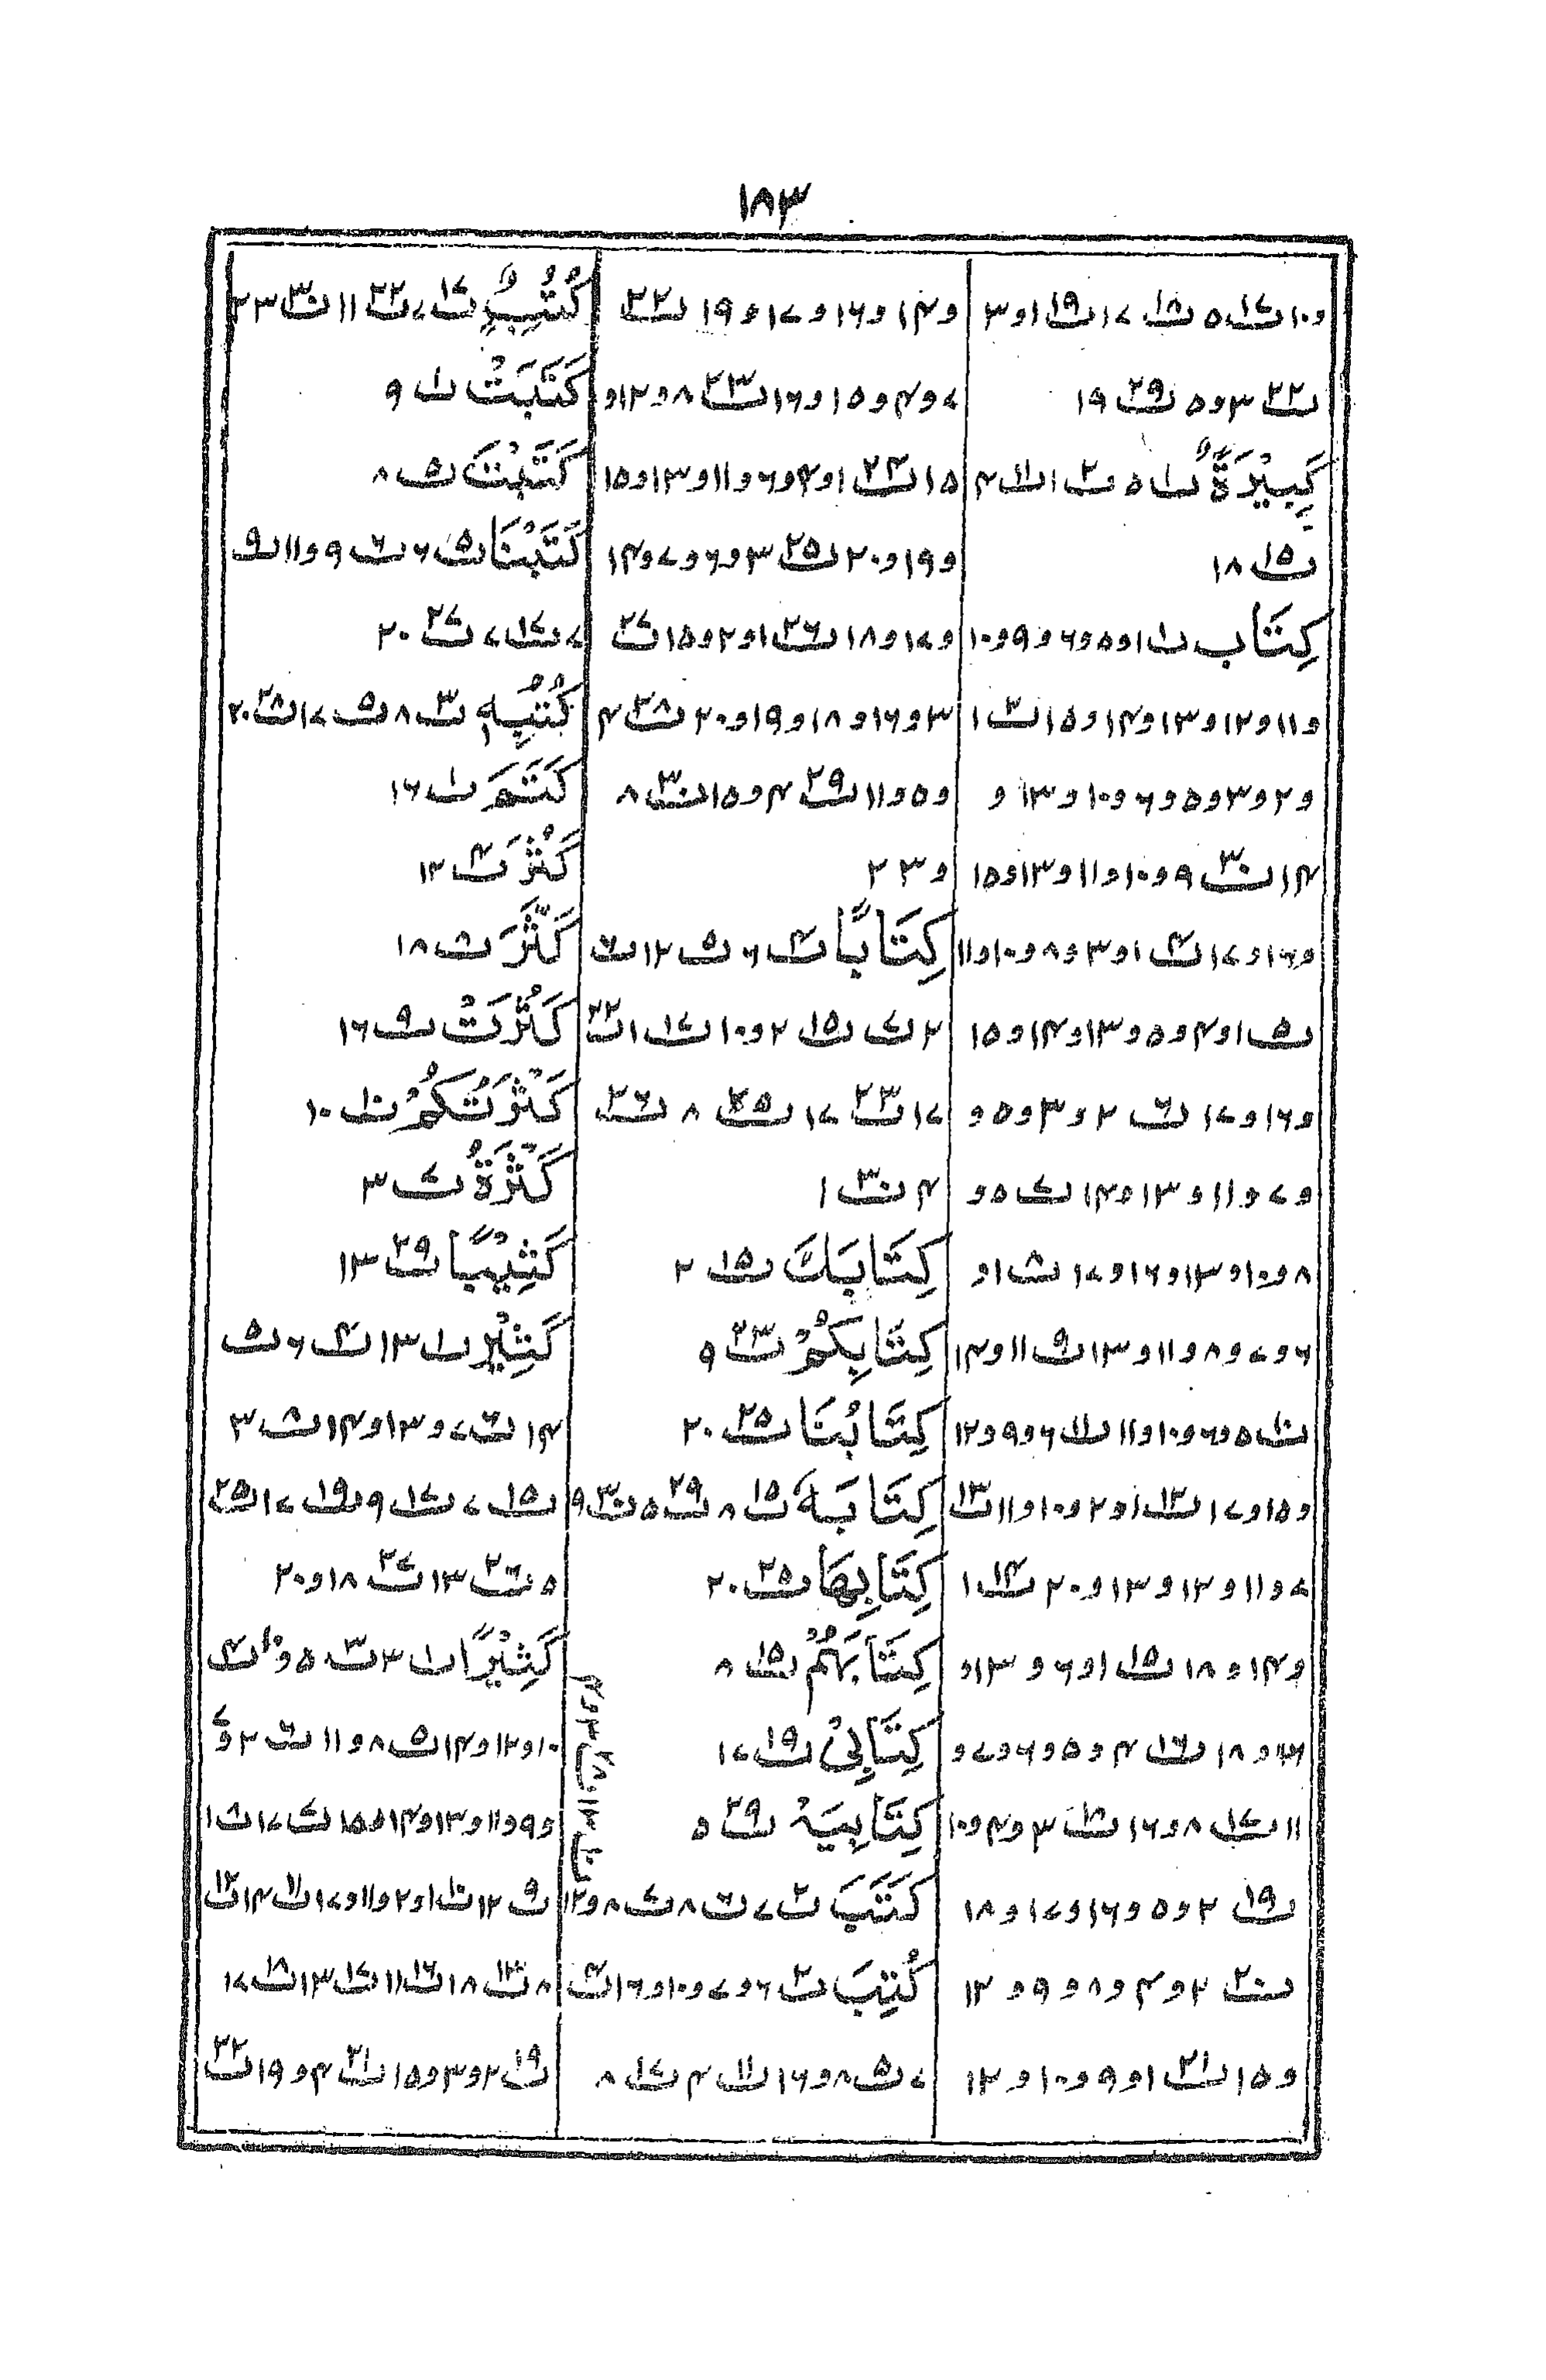 ۱۸۳
و۱۰ ث۱۷ ۵ ث۱۸ ۱۷ ث۱۹ ۱و۳
ث۲۲ ۳و۵ ث۲۹ ۱۹
كَبِيْرَةٌ ث۱ ۵ ث۲ ۱ ث۱۱ ۴
ث۱۵ ۱۸
كِتَاب ث۱ ۱و۵و۶و۹و۱۰
و۱۱و۱۲و۱۳و۱۴و۱۵ ث۲ ۱
و۲و۳و۵و۶و۱۰و۱۳و
۱۴ ث۳ ۹و۱۰و۱۱و۱۳و۱۵
و۱۶و۱۷ ث۴ ۱و۳و۸و۱۰و۱۱
ث۵ ۱و۴و۵و۱۳و۱۴و۱۵
و۱۶و۱۷ ث۶ ۲و۳و۵و
و۷و۱۱و۱۳و۱۴ ث۷ ۵و
۸و۱۰و۱۳و۱۶و۱۷ ث۸ ۱و
۶و۷و۸و۱۱و۱۳ ث۹ ۱۱و۱۴
ث۱۰ ۵و۶و۱۰و۱۱ ث۱۱ ۶و۹و۱۲
و۱۵و۱۷ ث۱۲ ۱و۲و۱۰و۱۱ ث۱۳
۷و۱۱و۱۲و۱۳و۲۰ ث۱۴ ۱
و۱۴و۱۸ ث۱۵ ۱و۶و۱۳و
و۱۸ ث۱۶ ۴و۵و۶و۷و
۱۱ ث۱۷ ۸و۱۶ ث۱۸ ۳و۴و۱۰
ث۱۹ ۲و۵و۱۶و۱۷و۱۸
ث۲۰ ۲و۴و۸و۹و۱۲
و۱۵ ث۲۱ ۱و۹و۱۰و۱۲
و۱۴و۱۶و۱۷و۱۹ ث۲۲
۷و۴و۱۵و۱۶ ث۲۳ ۸و۱۲و
۱۵ ث۲۴ ۱و۴و۶و۱۱و۱۳و۱۵
و۱۹و۲۰ ث۲۵ ۳و۶و۷و۱۴
و۱۷و۱۸ ث۲۶ ۱و۲و۱۵ ث۲۷
۳و۱۶و۱۸و۱۹و۲۰ ث۲۸ ۴
و۵و۱۱ ث۲۹ ۴و۱۵ ث۳۰ ۸
و۲۳
كِتَابًا ث۴ ۶ ث۵ ۱۲ ث۶
۲ ث۷ ث۱۵ ۲و۱۰ ث۱۷ ۱ ث۲۲
۱۷ ث۲۳ ۱۷ ث۲۵ ۸ ث۲۶
۴ ث۳۰ ۱
كِتَابَكَ ث۱۵ ۲
كِتَابِكُمْ ث۲۳ ۹
كِتَابُنَا ث۲۵ ۲۰
كِتَابَهٗ ث۱۵ ۸ ث۲۹ ۵ ث۳۰ ۹
كِتَابِهَا ث۲۵ ۲۰
كِتَابَهُمْ ث۱۵ ۸
كِتَابِیْ ث۱۹ ۱۷
كِتَابِيَهْ ث۲۹ ۵
كَتَبَ ث۲ ۷ ث۶ ۸ ث۷ ۸و۱۲
كُتِبَ ث۲ ۶و۷و۱۰و۱۶ ث۴
۷ ث۵ ۸و۱۶ ث۱۱ ۴ ث۱۷ ۸
ث۱۰ ۱۳ ث۲۸ ۳و۴
كُتُبٍ ث۱۷ ۷ ث۲۲ ۱۱ ث۳۰ ۲۳
كَتَبَتْ ث۱ ۹
كَتَبْتَ ث۵ ۸
كَتَبْنَا ث۵ ۶ ث۶ ۹و۱۱ ث۹
۷ ث۱۷ ۷ ث۲۷ ۲۰
كُتُبِهٖ ث۳ ۸ ث۵ ۱۷ ث۲۸ ۲۰
كَتَمَ ث۱ ۱۶
كَثُرَ ث۴ ۱۲
كَثَّرَ ث۸ ۱۸
كَثُرَتْ ث۹ ۱۶
كَثْرَتُكُمْ ث۱۰ ۱۰
كَثْرَةُ ث۷ ۳
كَثِيْبًا ث۲۹ ۱۳
كَثِيْر ث۱ ۱۳ ث۴ ۶ ث۵
۱۴ ث۶ ۷و۱۳و۱۴ ث۸ ۳
ث۱۵ ۷ ث۱۷ ۹ ث۱۹ ۱۷ ث۲۵
۵ ث۲۶ ۱۳ ث۲۷ ۱۸و۲۰
كَثِيْرًا ث۱ ۳ ث۳ ۵و۱۰ ث۴
۱۰و۱۲و۱۴ ث۵ ۸و۱۱ ث۶ ۲و۷
و۹و۱۱و۱۳و۱۴و۱۵ ث۷ ۱۷ ث۸ ۱
ث۹ ۱۲ ث۱۰ ۱و۲و۱۱و۱۷ ث۱۱ ۱۴ ث۱۲
۸ ث۱۳ ۱۸ ث۱۶ ۱۱ ث۱۷ ۱۳ ث۱۸ ۱۷
ث۱۹ ۲و۳و۱۵ ث۲۱ ۴و۱۹ ث۲۲